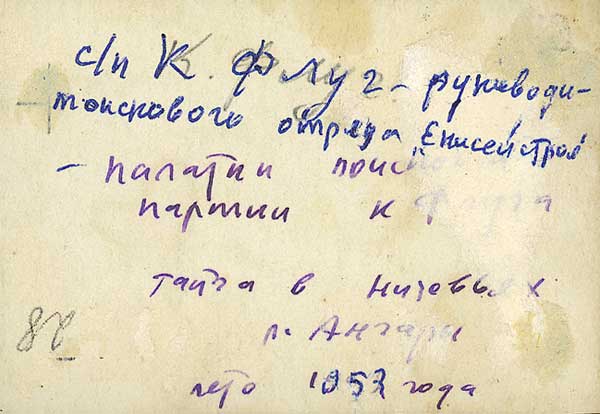 с/п К. Флуг - руководи-
поискового отряда "Енисейстроя"
- палатки поисковой
партии К Флуга
тайга в низовьях
р. Ангары
лето 1953 года